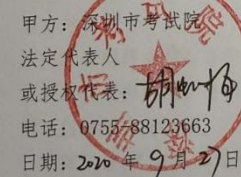 甲方：深圳市考试院
法定代表人
或授权代表：
电话：0755-88123663
日期：2020 年 9 月 27 日